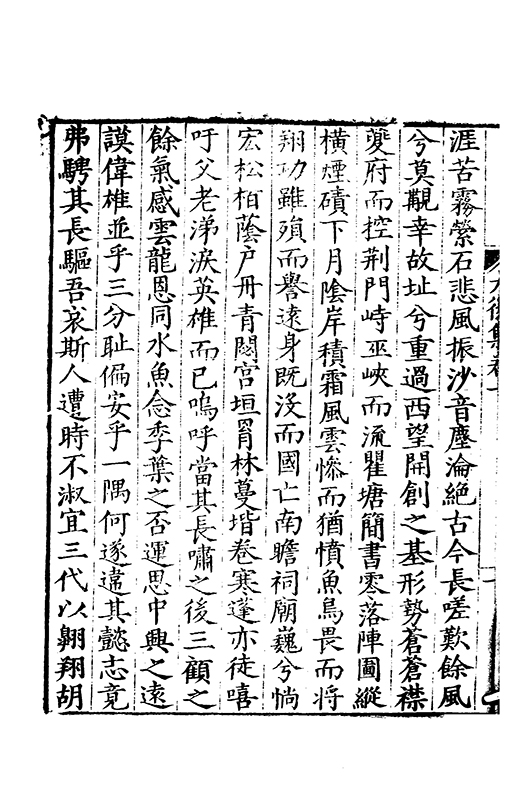 涯苦霧縈石悲風振沙音塵淪絶古今長嗟歎餘風
兮莫覿幸故址兮重過西望開創之基形勢蒼蒼襟
夔府而控荆門峙巫峽而流瞿塘簡書零落陣圖縱
横煙磧下月陰岸積霜風雲慘而猶憤魚鳥畏而將
翔功雖殞而譽遠身既没而國亡南瞻祠廟巍兮惝
宏松柏蔭户丹青閟宫垣胃林蔓堦卷寒蓬亦徒嘻
吁父老涕淚英雄而已嗚呼當其長嘯之後三顧之
餘氣感雲龍恩同水魚念季葉之否運思中興之遠
謨偉雄並乎三分耻偏安乎一隅何遂違其懿志竟
弗騁其長驅吾哀斯人遭時不淑宜三代以翱翔胡